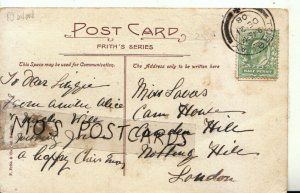 POST CARD
FRITH'S SERIES
This Space may be used for Communication.
The Address only to be written here
To Dear Lizzie
From Auntie Alice
Uncle Will
wishing
a happy Xmas
Miss
Cam House
Campden Hill
Notting Hill
London
HALF PENNY
JO'S POSTCARDS